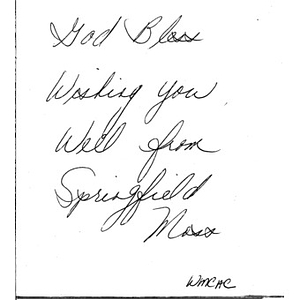 God Bless
Wishing you
Well from
Springfield
Mass
WMCHC